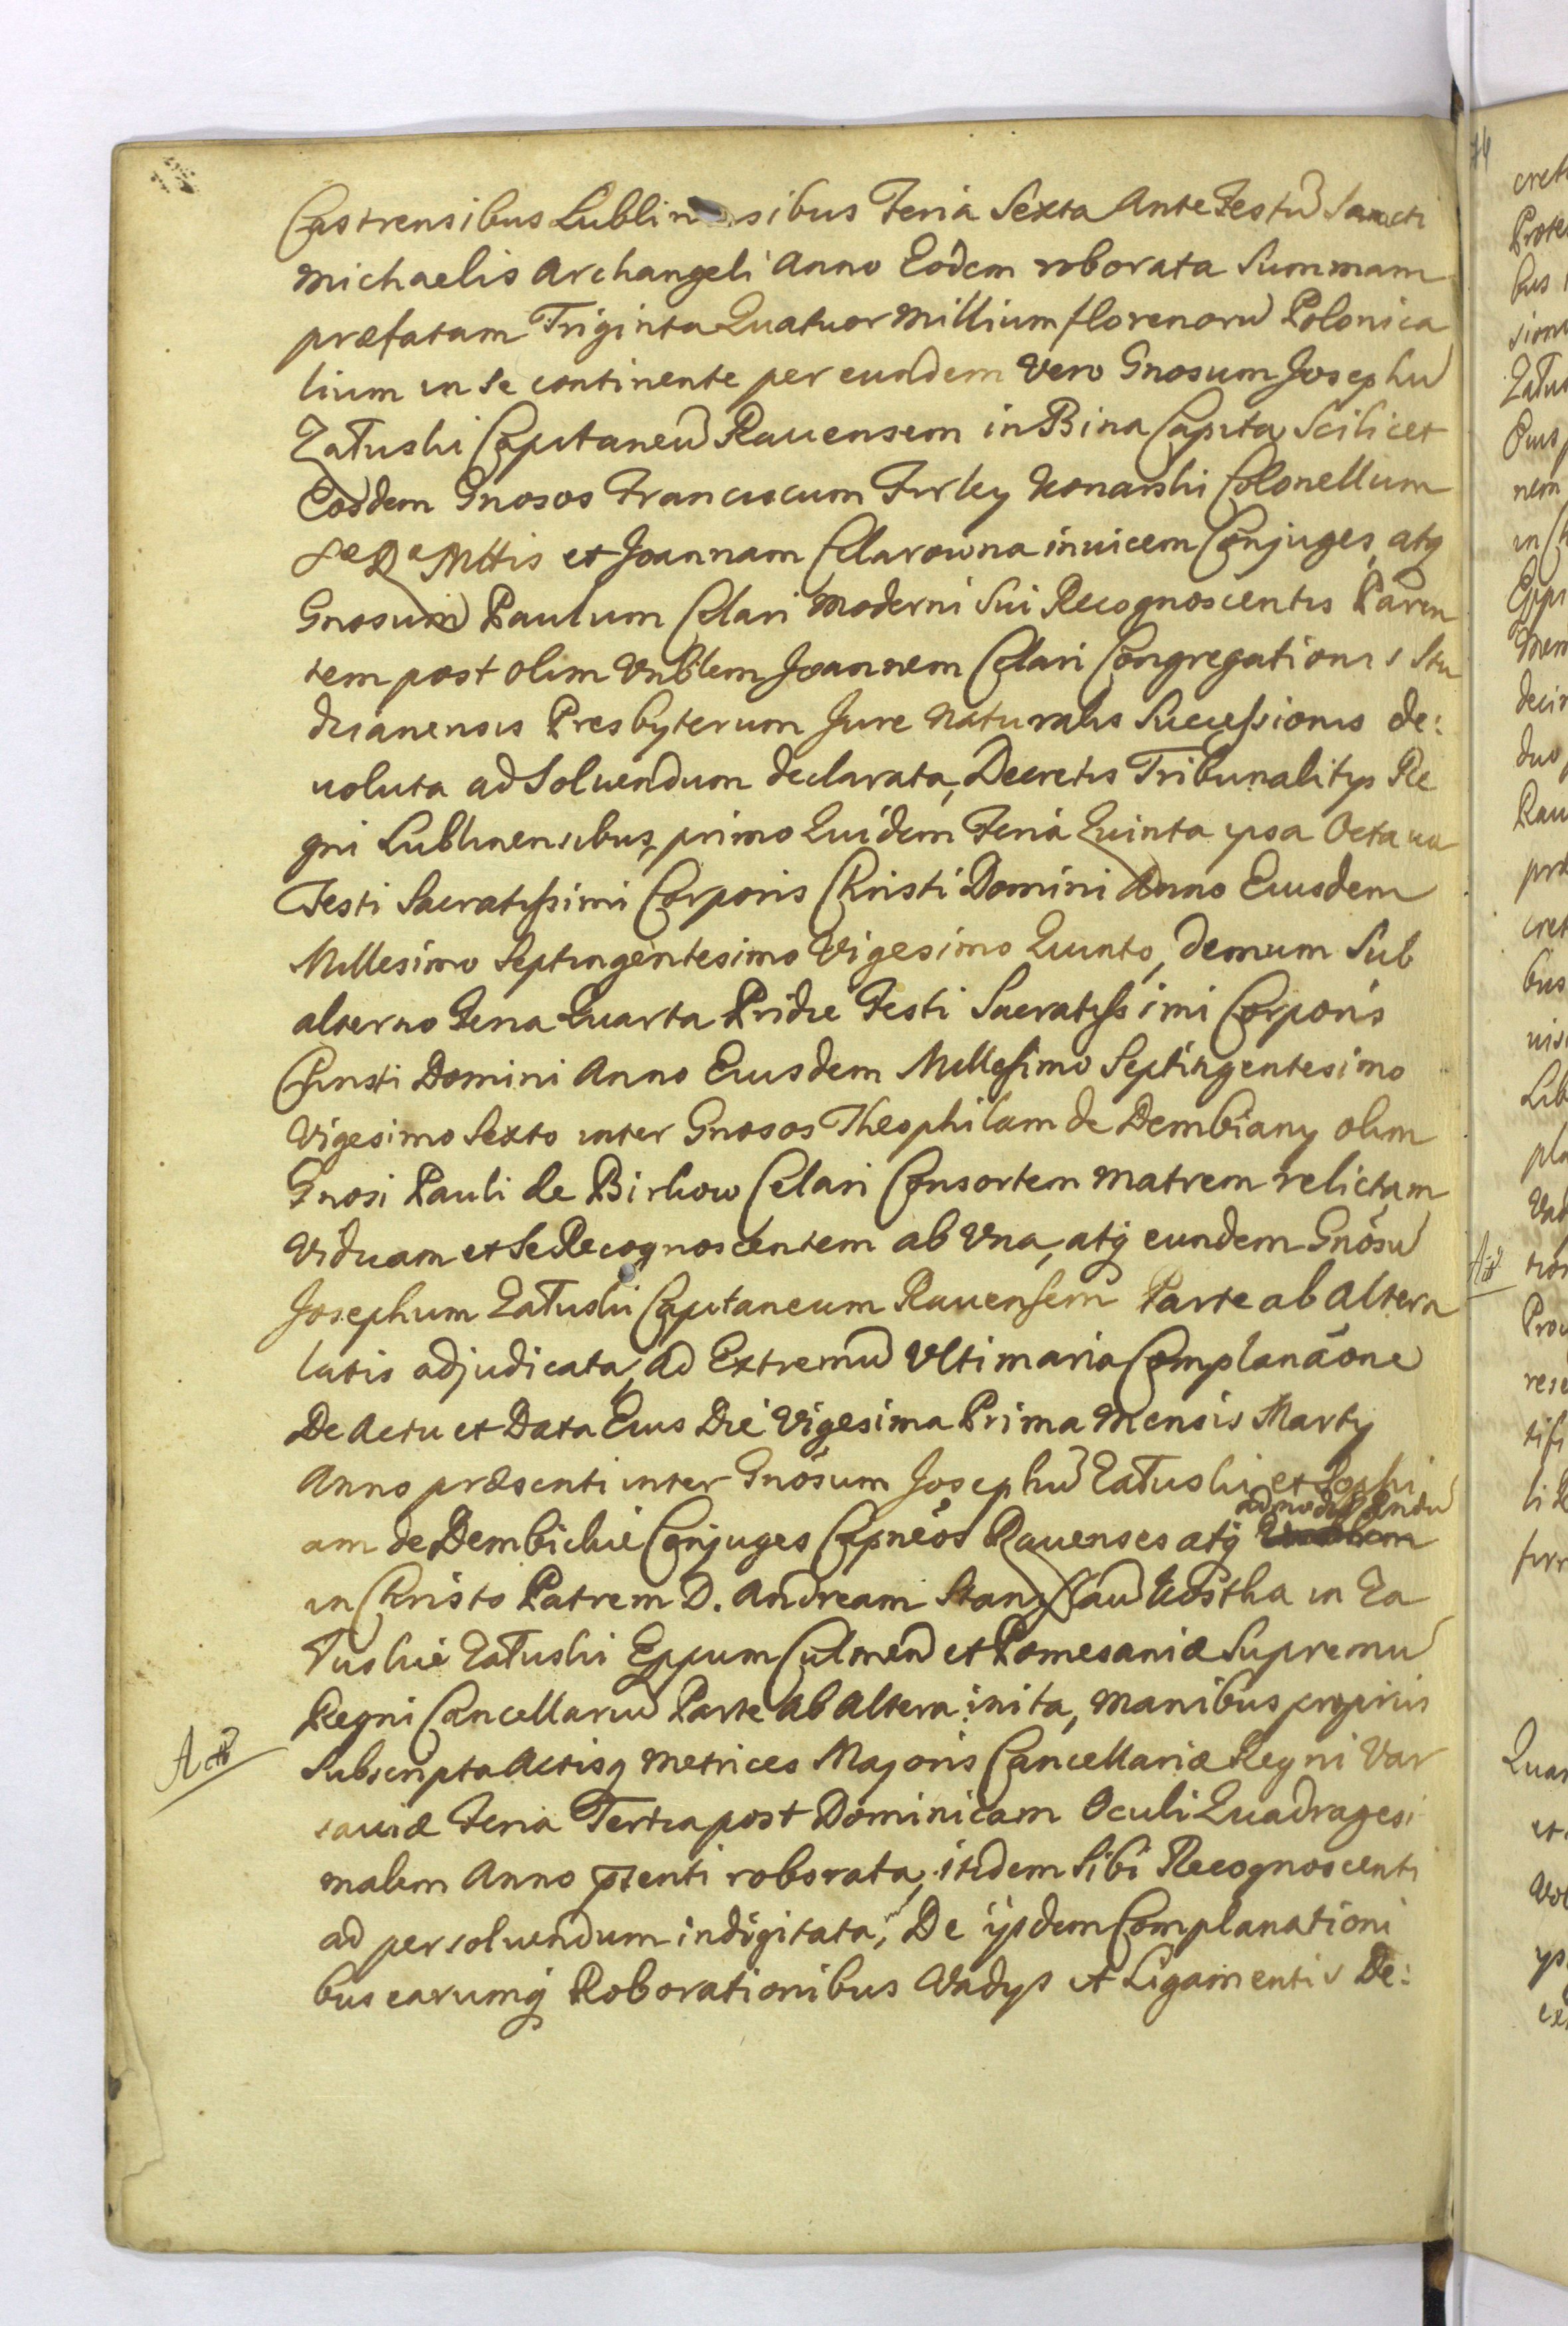 Castrensibus Lublin sibus Feria Sexta Ante Festũ Sancti
Michaelis Archangeli Anno Eodem roborata Summam
præfatam Triginta Quatuor Millium florenorũ Polonica
lium in se continente per eundem Vero Gnosum Josephũ
Załuski Capitaneũ Rauensem in Bina Capita Scilicet
Eosdem Gnosos Franciscum Firley Konarski Colonellum
SæRæMttis et Joannam Celarowna inuicem Conjuges, atq
Gnosum Paulum Celari Moderni Sui Recognoscentis Paren
tem post olim Vnblem Joannem Celari Congregationis Stu
dzianensis Presbyterum Jure Naturalis Successionis de:
uoluta ad Soluendum declarata, Decretis Tribunalitys Re
gni Lublinensibus, primo Quidem Feria Quinta ipsa Octaua
Festi Sacratissimi Corporis Christi Domini Anno Eiusdem
Millesimo Septingentesimo Vigesimo Quinto, demum Sub
alterno Feria Quarta Pridie Festi Sacratissimi Corporis
Christi Domini Anno Eiusdem Millesimo Septingentesimo
Vigesimo Sexto inter Gnosos Theophilam de Dembiany olim
Gnosi Pauli de Birkow Celari Consortem Matrem relictam
Viduam et Se Recognoscentem ab Vna, atq eundem Gnõsũ
Josephum Załuski Capitaneum Rauensem Parte ab Altera
latis adjudicata, ad Extremũ Vltimaria Complanãone
De Actu et Data Eius Die Vigesima Prima Mensis Marty
Anno præsenti inter Gnõsum Josephũ Załuski et Sophi
am de Dembickie Conjuges Capnẽos Rauenses atq admodũ Rndũ
in Christo Patrem D. Andream Stanislaũ Kostka in Za
łuskie Załuski Eppum Culmen et Pomesaniæ Supremũ
Regni Cancellariũ Parte Ab Altera inita, Manibus proprijs
Subscripta Actisq Metrices Majoris Cancellariæ Regni Var
sauiæ Feria Tertia post Dominicam Oculi Quadragesi
malem Anno pnti roborata, itidem Sibi Recognoscenti
ad persoluendum indigitata, De ijsdem Complanationi
bus earumq Roborationibus Vadys et Ligamentis De: